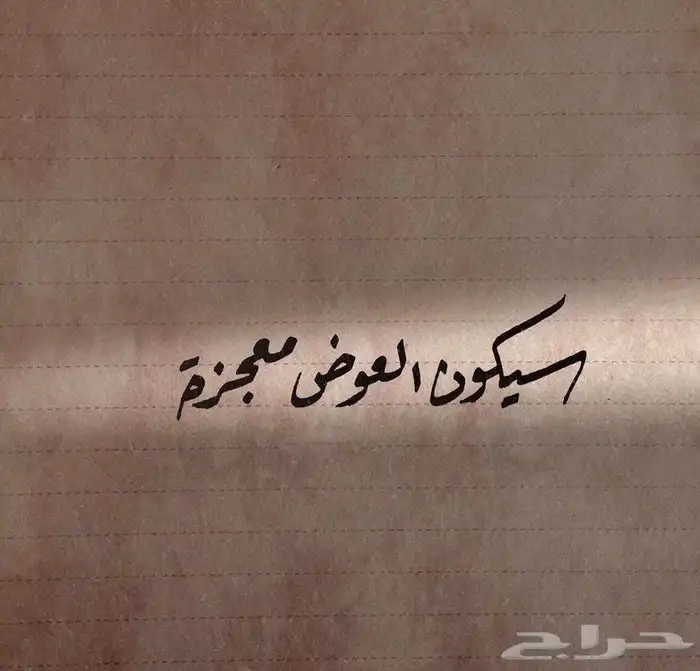 سيكون العوض معجزة
حراج